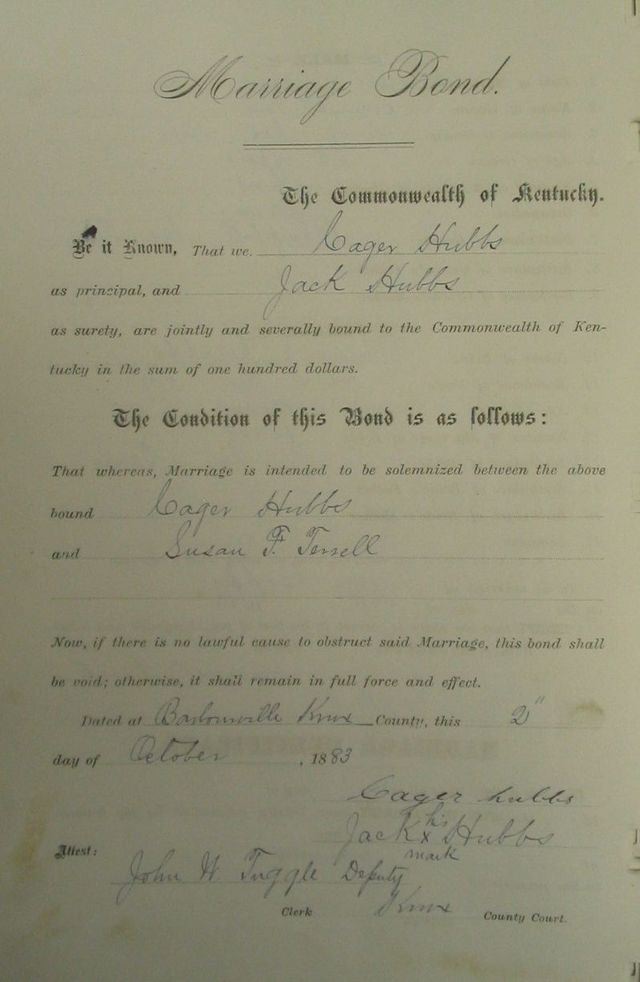 Marriage Bond.
The Commonwealth of Kentucky.
Be it Known, That we. Cager Hubbs
as principal, and Jack Hubbs
as surety, are jointly and severally bound to the Commonwealth of Ken-
tucky in the sum of one hundred dollars.
The Condition of this Bond is as follows:
That whereas, Marriage is intended to be solemnized between the above
bound Cager Hubbs
and Susan F. Terrell
Now, if there is no lawful cause to obstruct said Marriage, this bond shall
be void; otherwise, it shall remain in full force and effect.
Dated at Barbourville Knox County, this 2"
day of October, 1883
Cager hubbs
his
Jack x Hubbs
mark
Attest:
John W. Tuggle Deputy
Clerk Knox County Court.